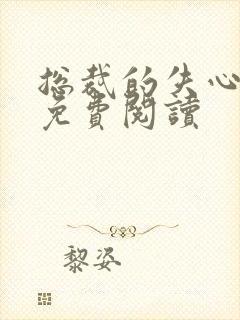 总裁的失心
免費閱讀
黎姿